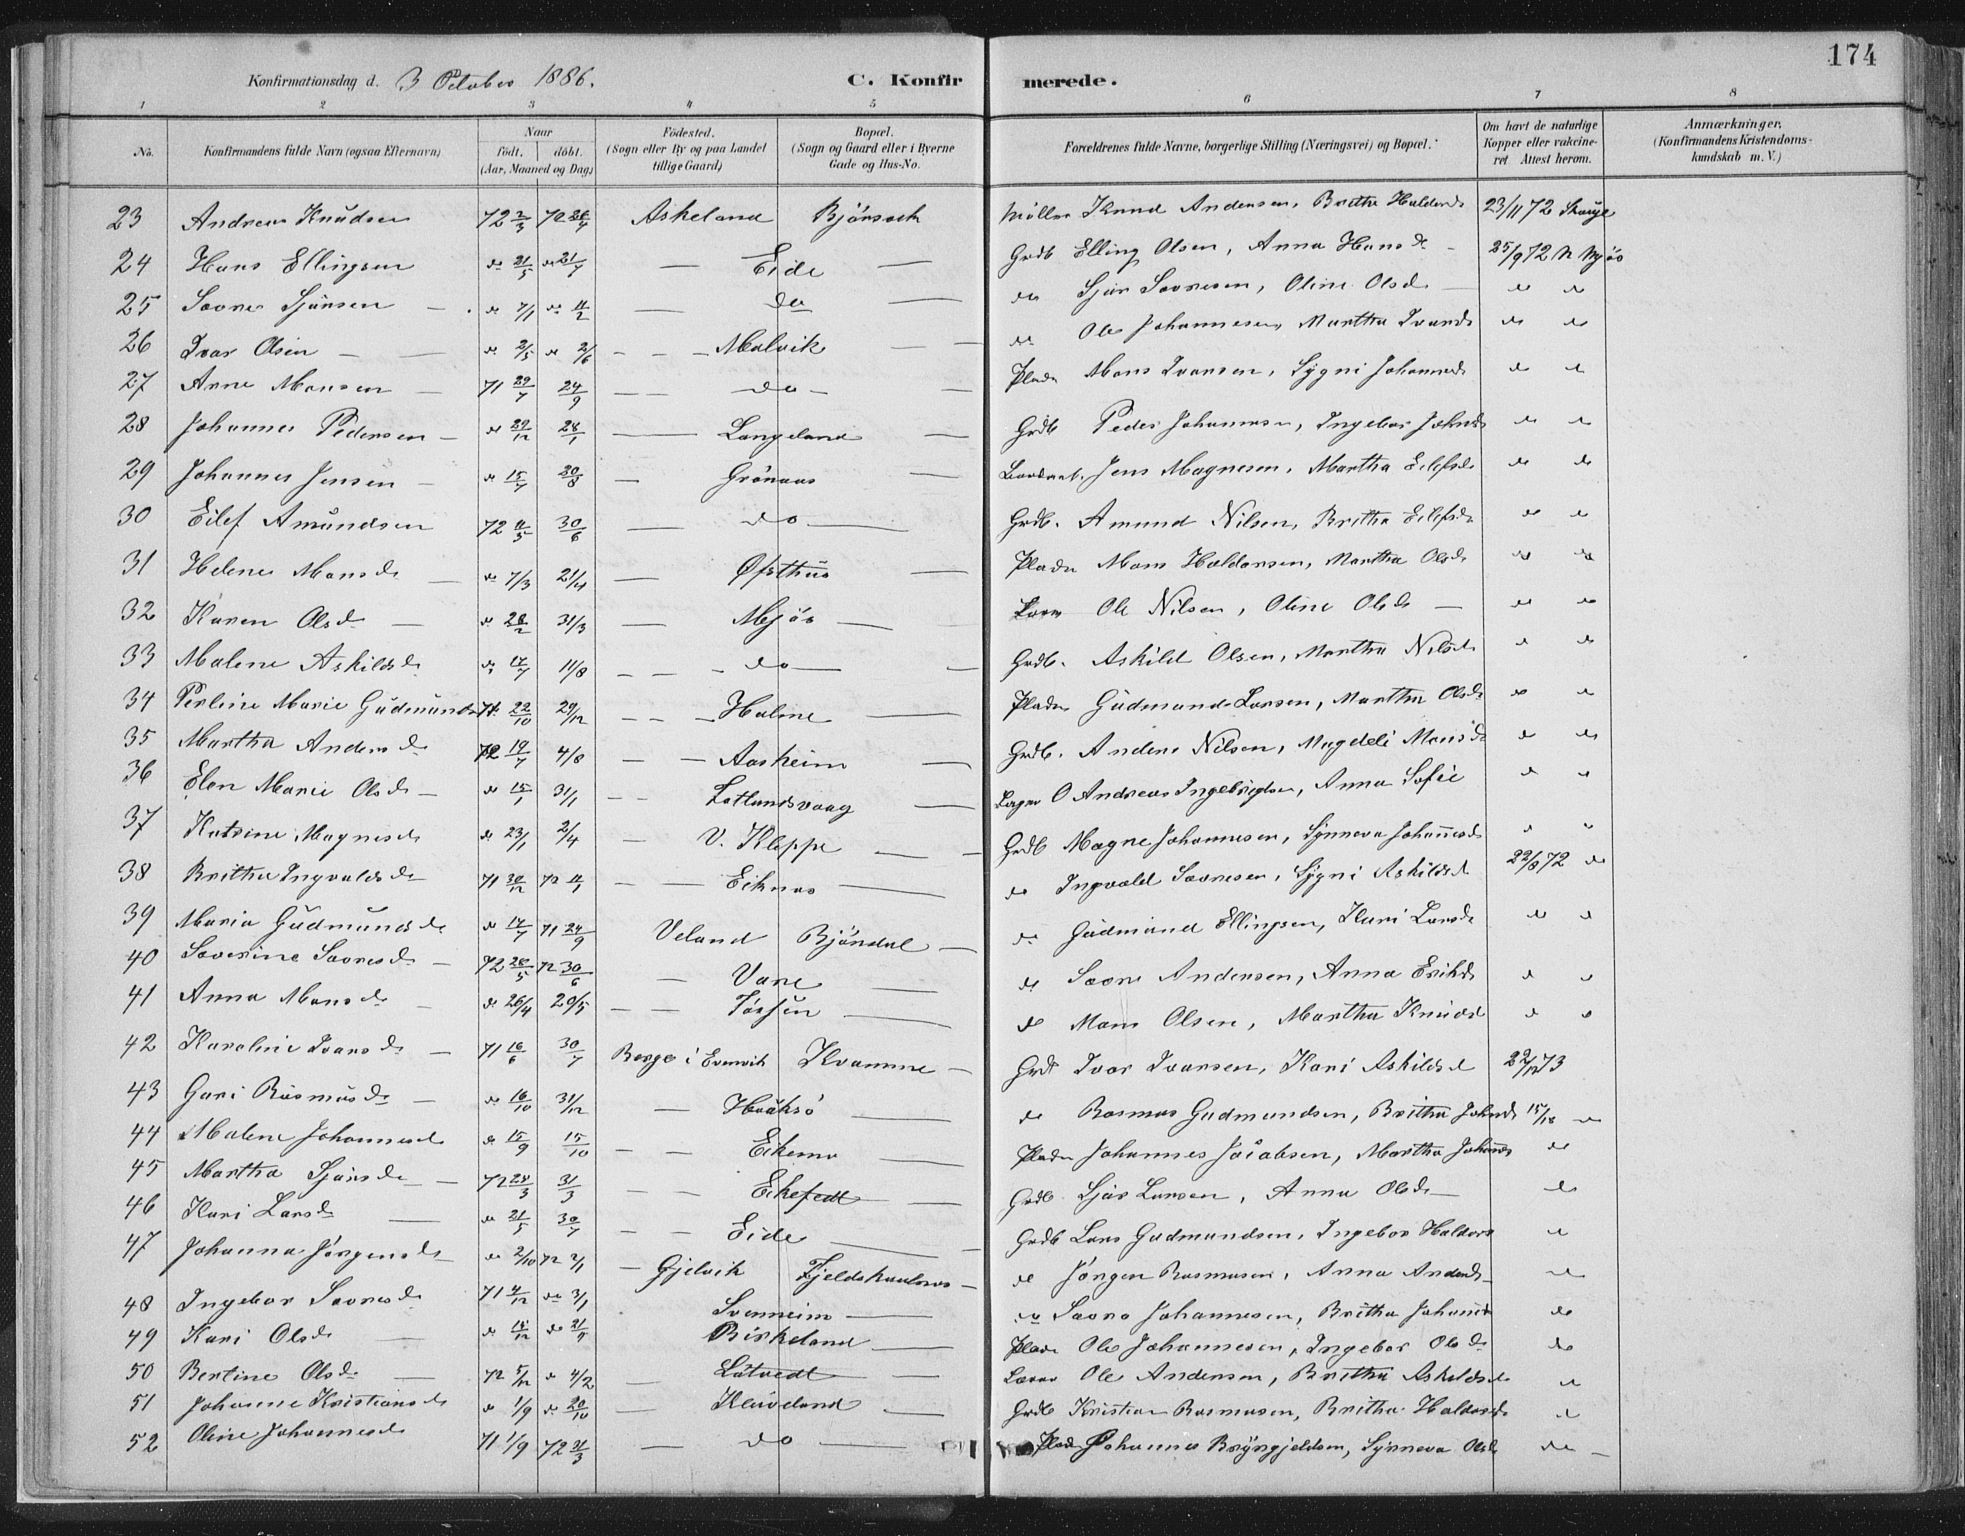 174
Konfirmationsdag d. 3 October 1886. C. Konfirmerede.
1 2 3 4 5 6 7 8
No. Konfirmandens fulde Navn (ogsaa Efternavn) Naar födt. döbt. (Aar, Maaned og Dag) Födested. (Sogn eller By og paa Landet tillige Gaard) Bopæl. (Sogn og Gaard eller i Byerne Gade og Hus-No. Forældrenes fulde Navne, borgerlige Stilling (Næringsvei) og Bopæl. Om havt de naturlige Kopper eller vakcineret Attest herom. Anmærkninger. (Konfirmandens Kristendomskundskab m. V.)
23 Andreas Knudsen 72 72 Askeland Björsvik Knud Andersen, Brithe Haldorsd 23/11 72
24 Hans Ellingsen do 21/5 do 21/7 — Eide — Grdb Elling Olsen, Anna Hansd — 25/9 72 N Mjös
25 Sjursen do 7/1 do 11/2 — do — do Sjur Sovresen, Oline Olsd — do do
26 Ivar Olsen do 2/5 do 2/6 — Malvik — do Ole Johannesen, Martha Ivarsd do do
27 Arne Monsen 71 29/7 24/9 — do — Plads Mons Ivarsen, Sygni Johannesd do do
28 Johannes Pedersen — do 29/12 28/1 — Langeland — Grdb Peder Johannesen, Ingebor Johnsd do do
29 Johannes Jensen — do 15/7 20/8 — Grönaas — Jens Magnesen, Martha Eilefsd do do
30 Eilef Amundsen 72 11/5 30/6 — do — Grdb. Amund Nilsen, Britha Eilefsd do do
31 Helene Monsd — do 7/3 21/4 — Øfsthus — Plads Mons Haldorsen, Martha Olsd do do
32 Karen Olsd — do 28/2 31/3 — Mjös — Ole Nilsen, Oline Olsd — do do
33 Malene Askildsd do 14/7 11/8 — do — Grdb. Askild Olsen, Martha Nilsd do do
34 Perline Marie Gudmundsd 71 22/10 29/12 — Holme — Plads Gudmund Larsen, Martha Olsd do do
35 Martha Andersd 72 19/7 4/8 — Aasheim — Grdb. Anders Nilsen, Magdeli Monsd do do
36 Elen Marie Olsd — do 15/1 31/1 — Lotlandsvaag — O Andreas Ingebrigtsen, Anna Sofie do do
37 Katrine Magnesd do 23/1 2/4 — V. Kleppe — Grdb Magne Johannesen, Synneva Johannesd do do
38 Britha Ingvaldsd 71 30/12 72 11/1 — Eiknes — do Ingvald Sovresen, Sygni Askildsd 22/8 72 do
39 Maria Gudmundsd do 14/7 71 24/9 Veland Bjöndal — do Gudmund Ellingsen, Kari Larsd do do
40 Soverine Sovresd — 72 28/5 72 30/6 — Vare — do Sovre Andersen, Anna Eriksd do do
41 Anna Monsd — do 26/4 20/5 — — do Mons Olsen, Martha Knudsd do do
42 Karoline Ivarsd — 71 16/6 30/7 Berge i Evenvik Kvamme — Grdb Ivar Ivarsen, Kari Askildsd 22/12 73
43 Guri Rasmusd — do 16/10 31/12 — — do Rasmus Gudmundsen, Britha Johnsd 15/18 do
44 Malene Johannesd do 15/9 15/10 — Eikemo — Plads Johannes Jakobsen, Martha Johannesd do
45 Martha Sjursd — 72 28/3 31/3 — Eikefedt — Grdb Sjur Larsen, Anna Olsd — do
46 Kari Larsd — do 21/5 30/7 — Eide — Grdb Lars Gudmundsen, Ingebor Haldorsd do
47 Johanna Jörgensd do 2/10 72 2/1 — Gjelvik — do Jörgen Rasmusen, Anna Andersd do
48 Ingebor Sovresd 71 4/12 do 3/1 Svenheim — do Sovre Johannesen, Britha Johannesd do
49 Kari Olsd — do 15/12 do 21/9 Birkeland — Plads Ole Johannesen, Ingebor Olsd do
50 Bertine Olsd — 72 5/12 do 4/2 — Lötvedt — Ole Andersen, Britha Askildsd do
51 Johanne Kristiansd do 1/9 do 20/10 — Kleiveland — Grdb Kristian Rasmusen, Britha Haldorsd do
52 Oline Johannesd 71 1/9 72 31/3 — do — Plads Johannes Brynjeldsen, Synneva Olsd do —